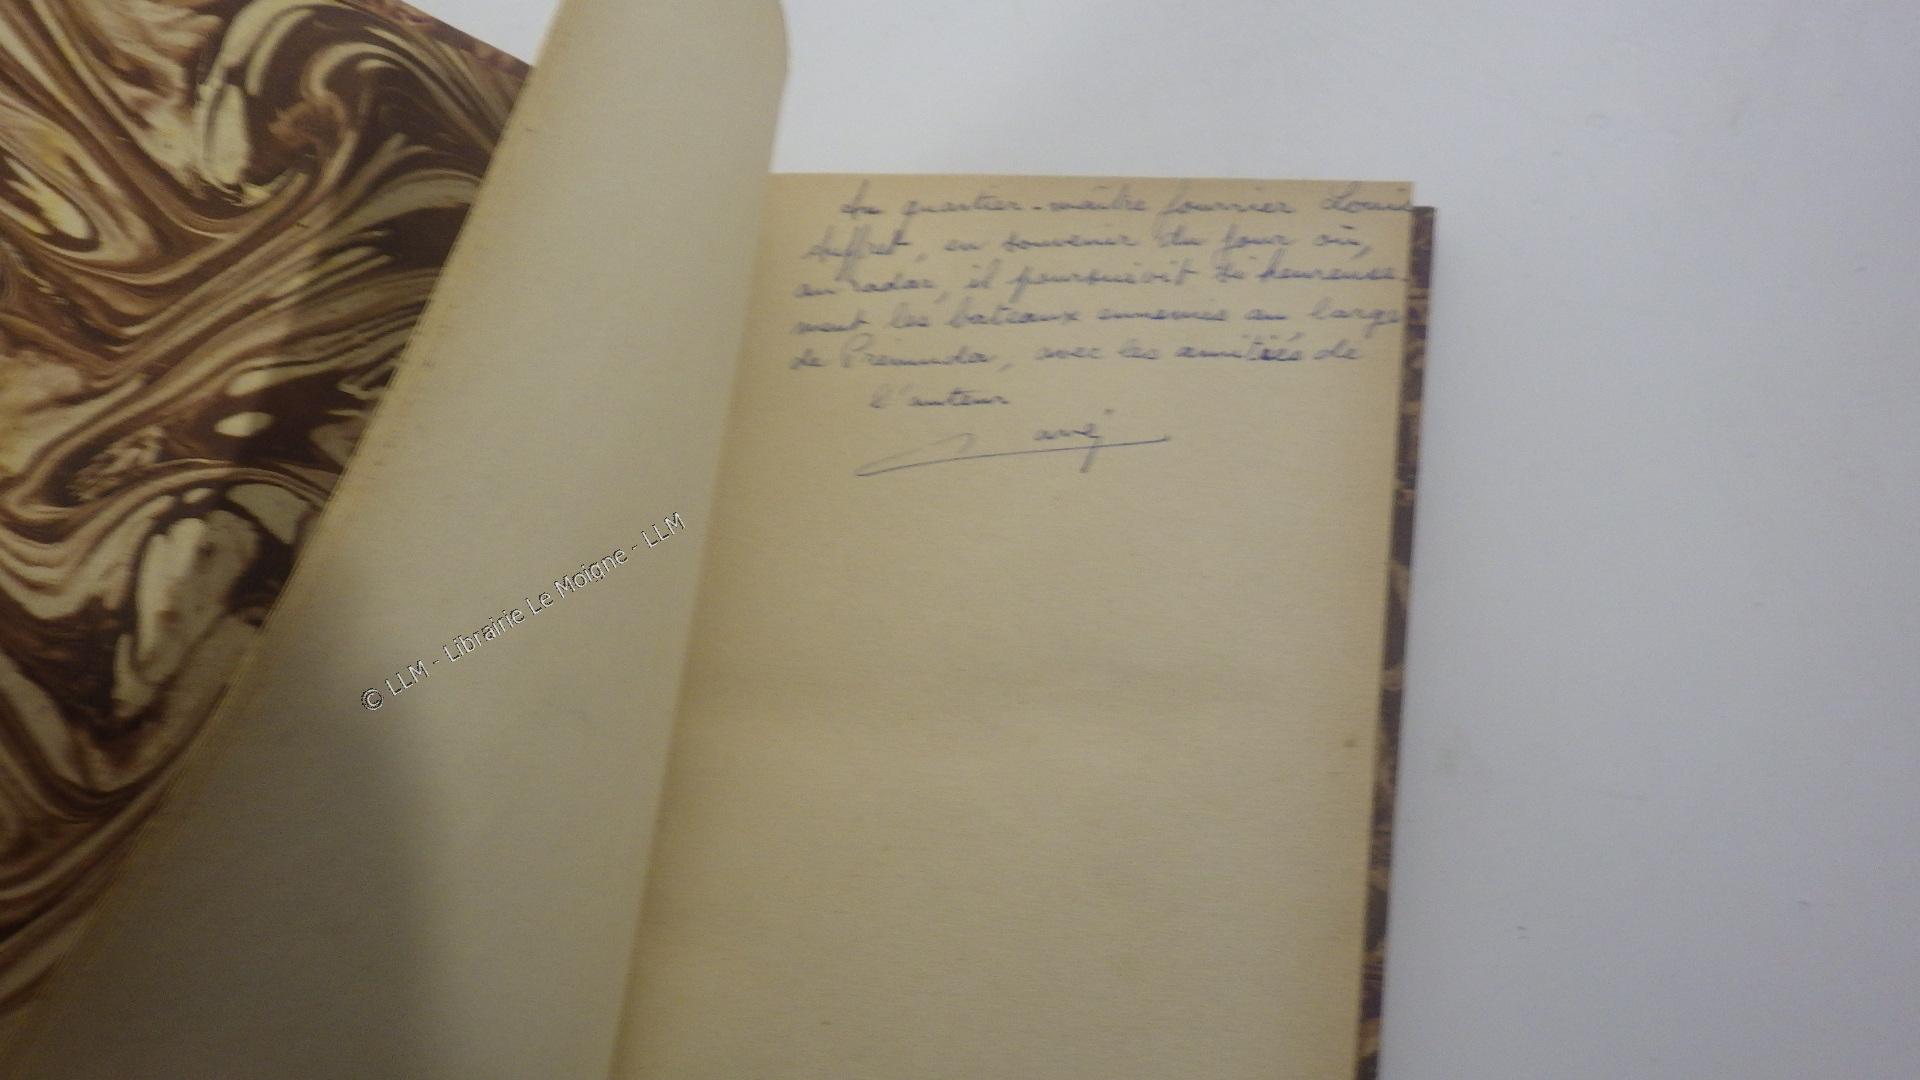 Au quartier-maître fourrier Louis
Suffret, en souvenir du jour où,
au radar, il poursuivit si heureuse-
ment les bateaux ennemis au large
de Premuda, avec les amitiés de
l'auteur
© LLM - Librairie Le Moigne - LLM